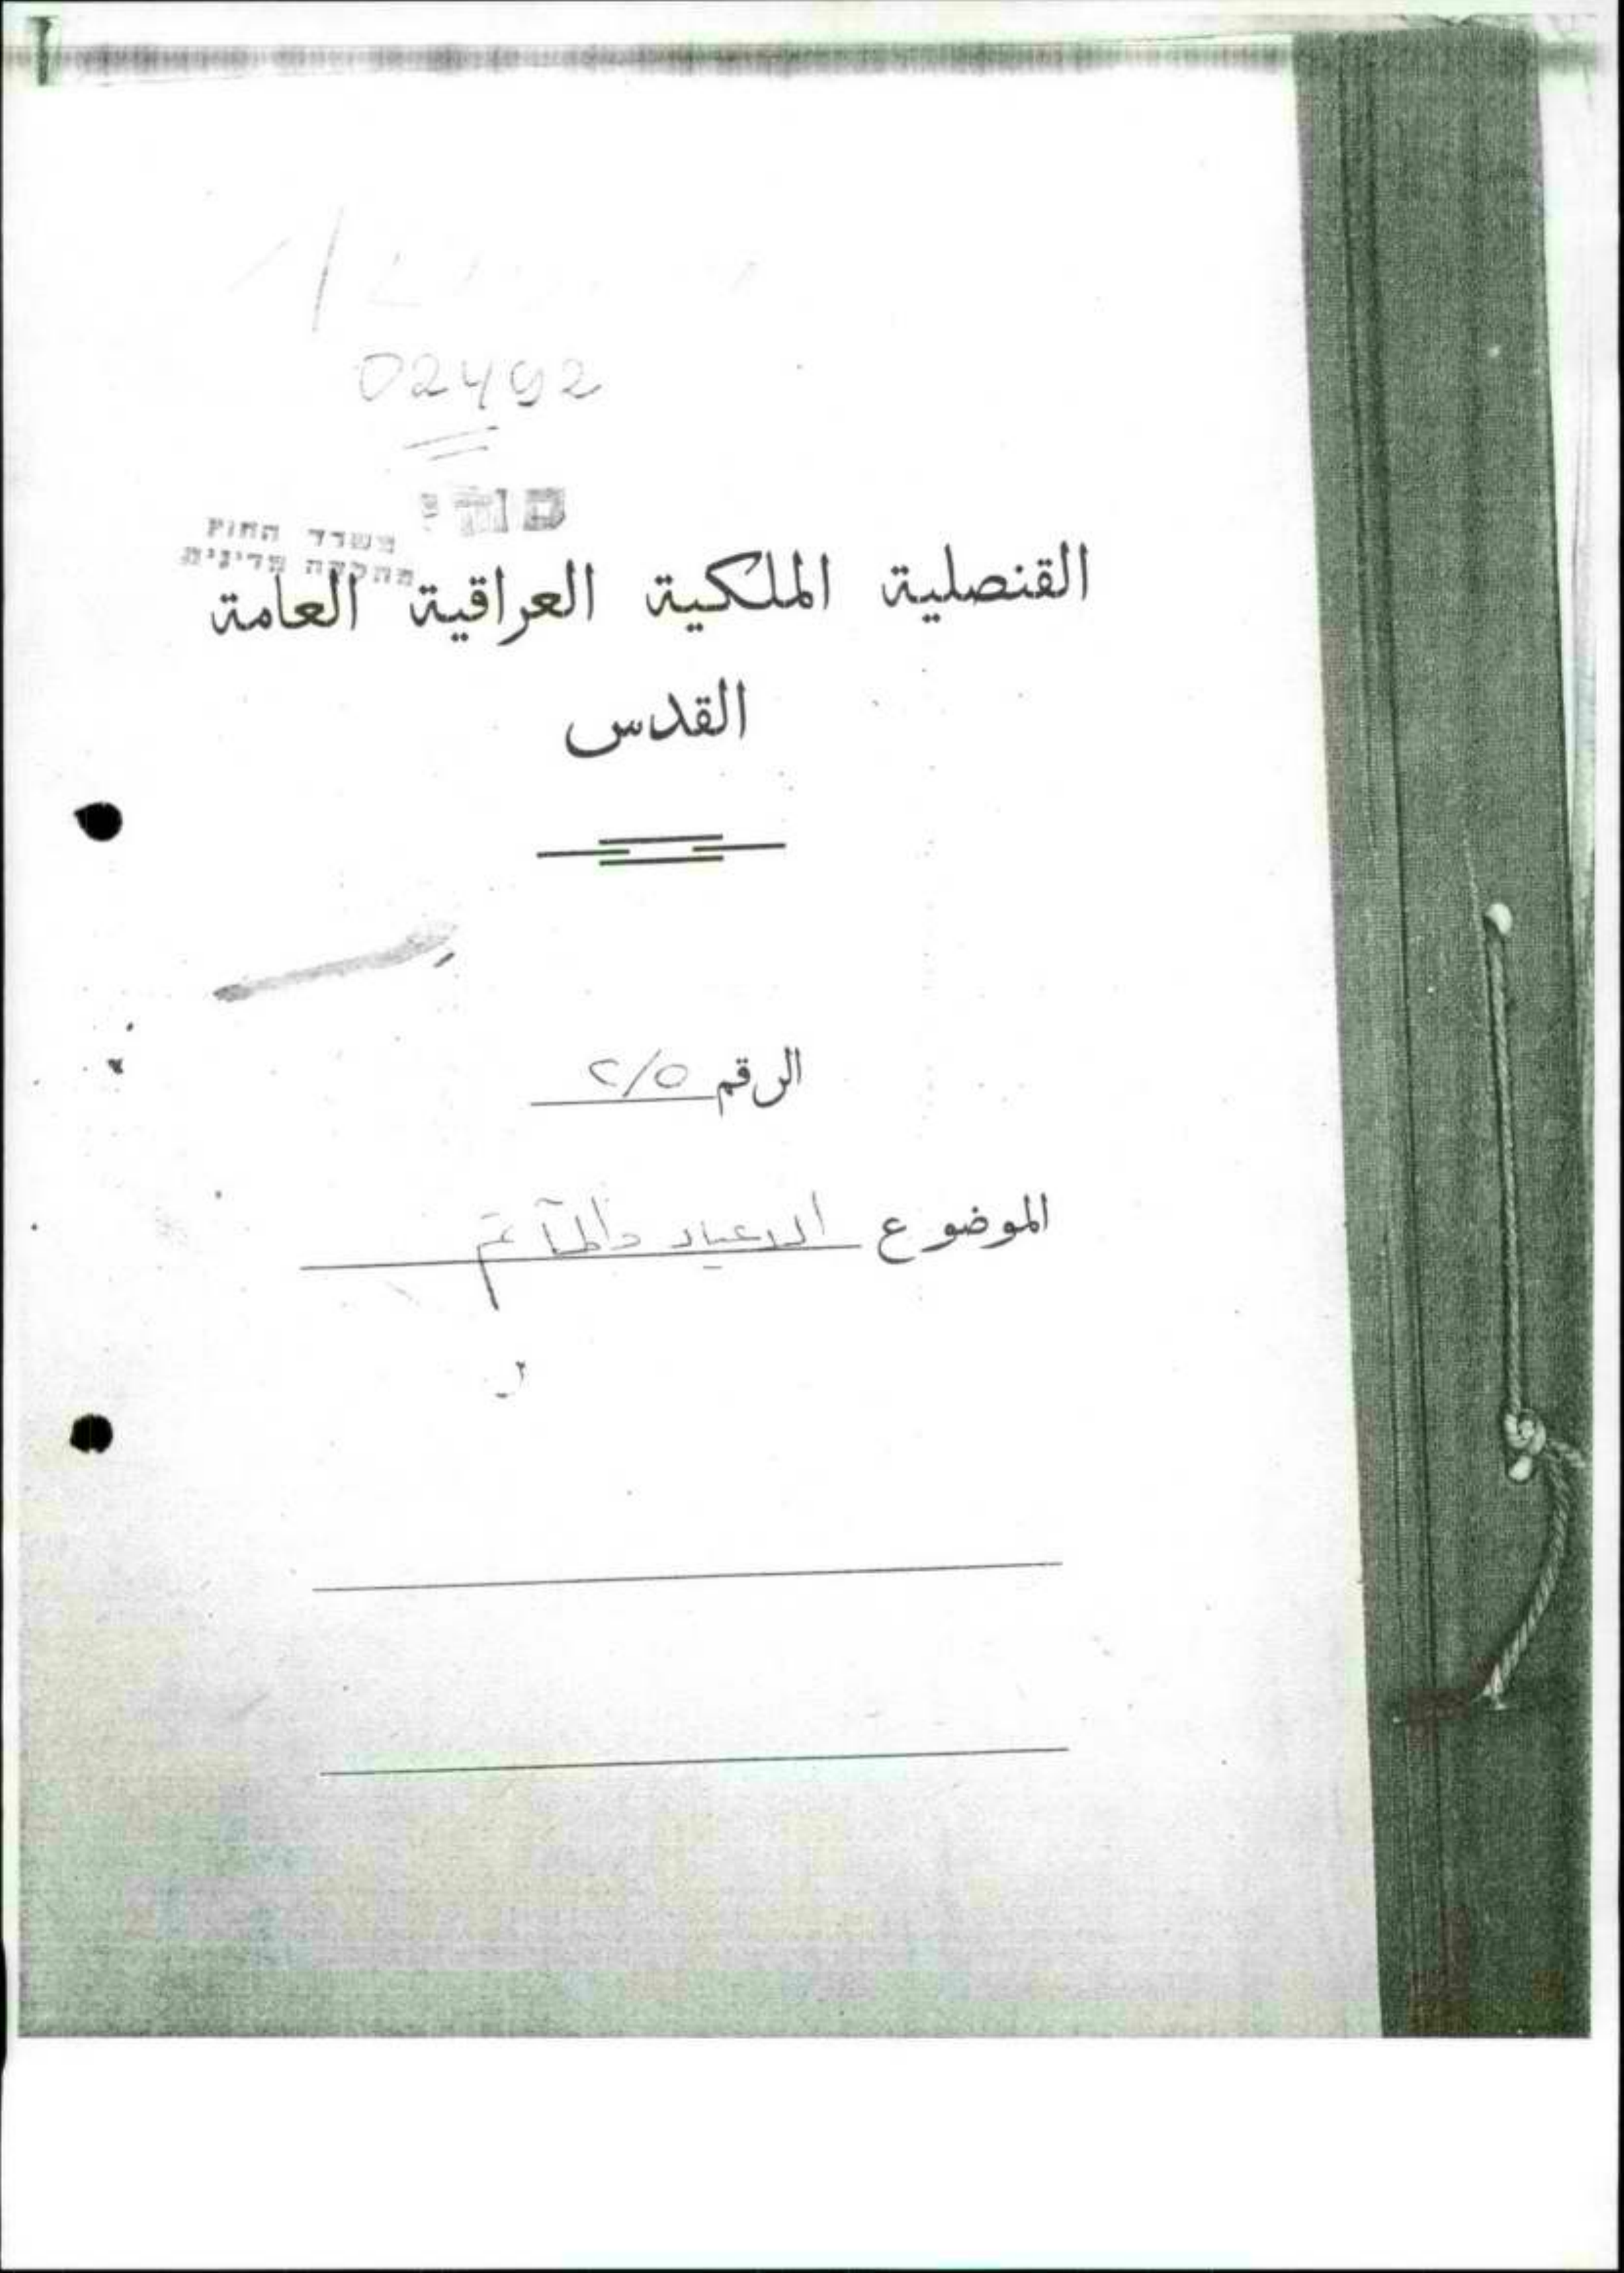 02492
סודי
משרד החוץ
מחלקה מדינית
القنصلية الملكية العراقية العامة
القدس
الرقم ٢/٥
الموضوع الاعياد والمآتم